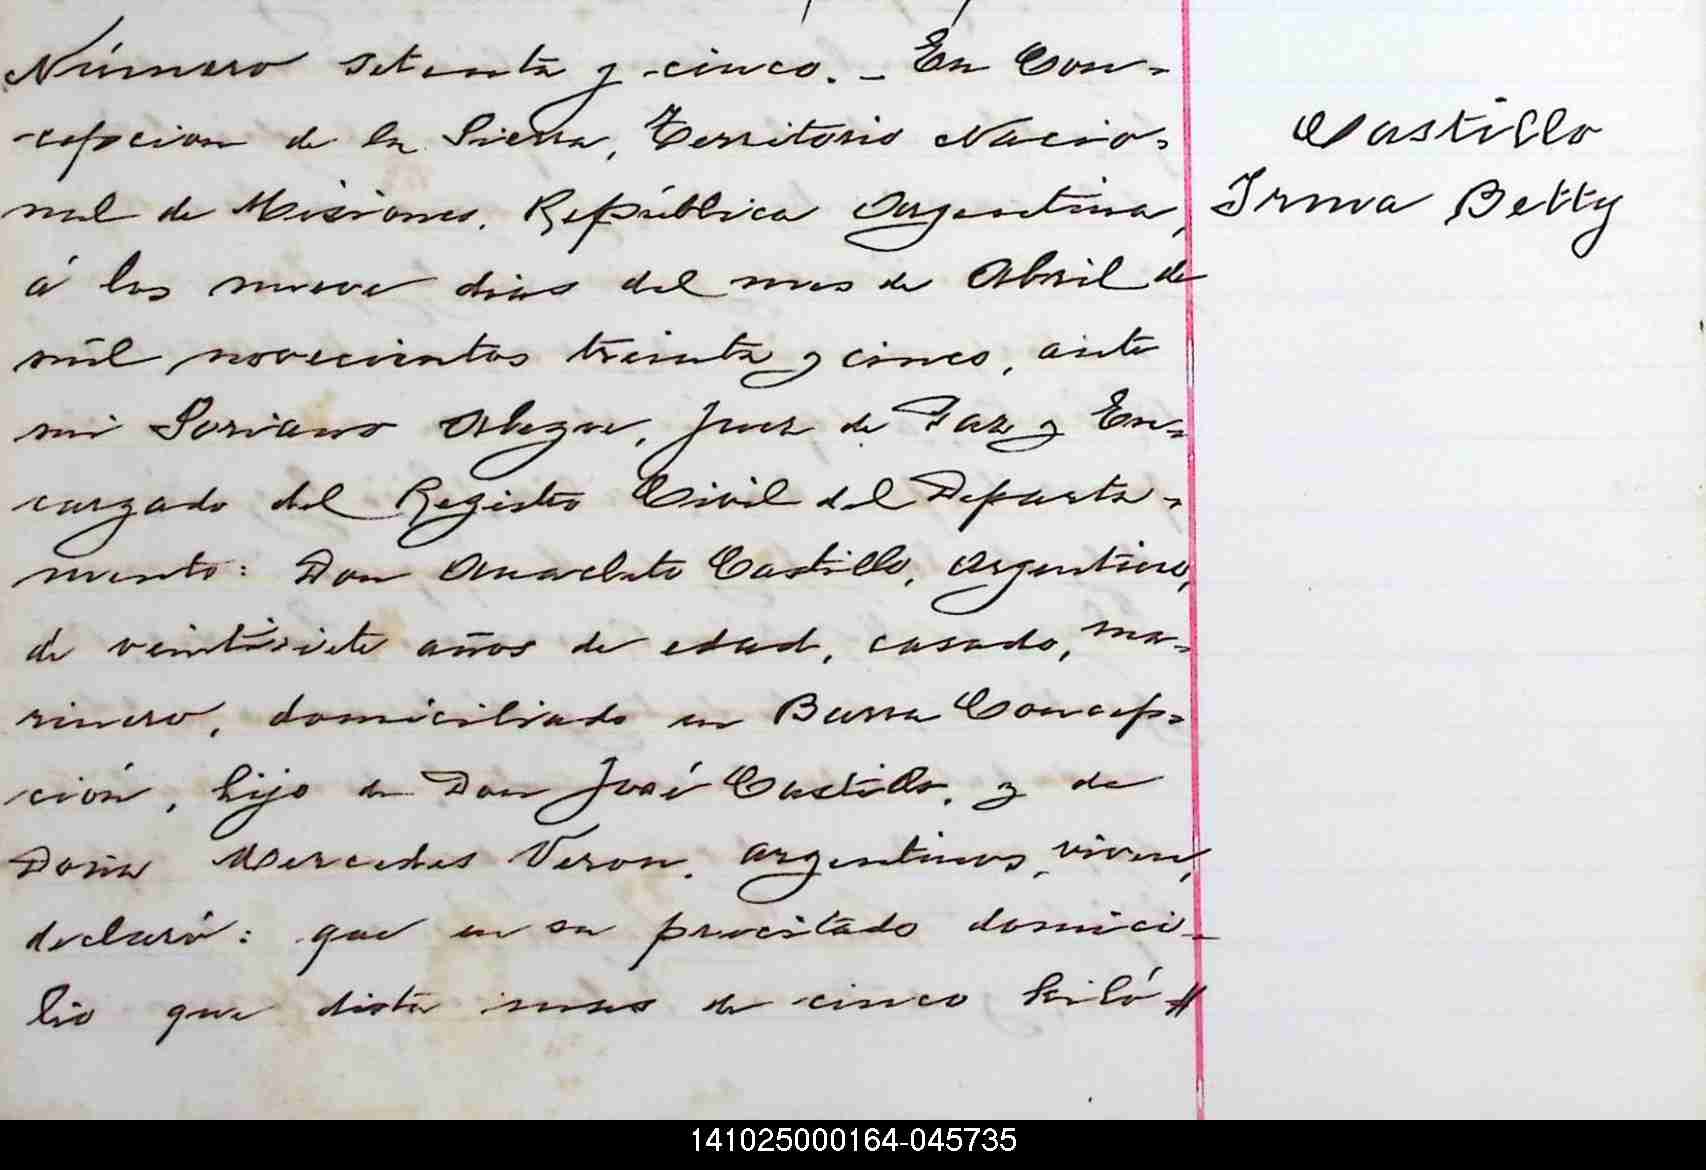 Número setenta y cinco. – En Con-
cepcion de la Sierra, Territorio Nacio-
nal de Misiones, República Argentina,
á los nueve dias del mes de Abril de
mil novecientos treinta y cinco, ante
mi Soriano Juez de Paz y En-
cargado del Registro Civil del Departa-
mento: Don Anacleto Castillo, argentino,
de veintisiete años de edad, casado, ma-
rinero, domiciliado en Barra Concep-
ción, hijo de Don José Castillo, y de
Doña Mercedes Veron, argentinos, viven,
declaró: que en su precitado domici-
lio que dista mas de cinco kiló //
Castillo
Irma Betty
141025000164-045735